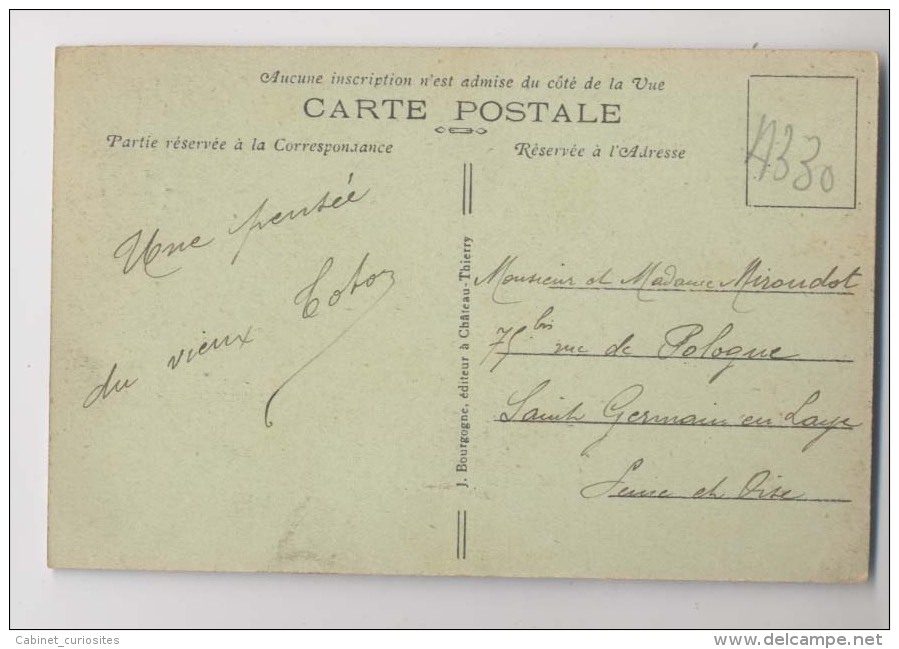 Aucune inscription n'est admise du côté de la Vue
CARTE POSTALE
Partie réservée à la Correspondance
Réservée à l'Adresse
A330
Une pensée
du vieux Totor
J. Bourgogne, éditeur à Château-Thierry
Monsieur et Madame Miroudot
75 bis rue de Pologne
Saint Germain en Laye
Seine et Oise
Cabinet_curiosites
www.delcampe.net